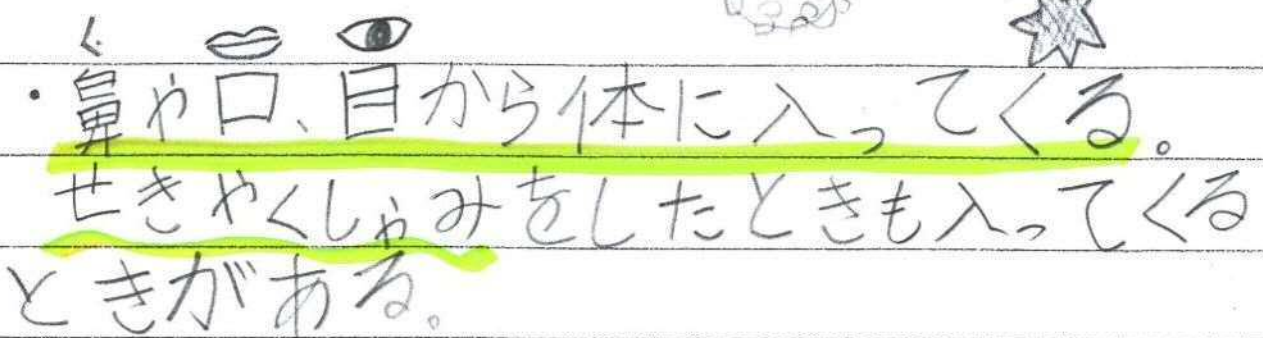 ・鼻や口、目から体に入ってくる。
せきやくしゃみをしたときも入ってくる
ときがある。